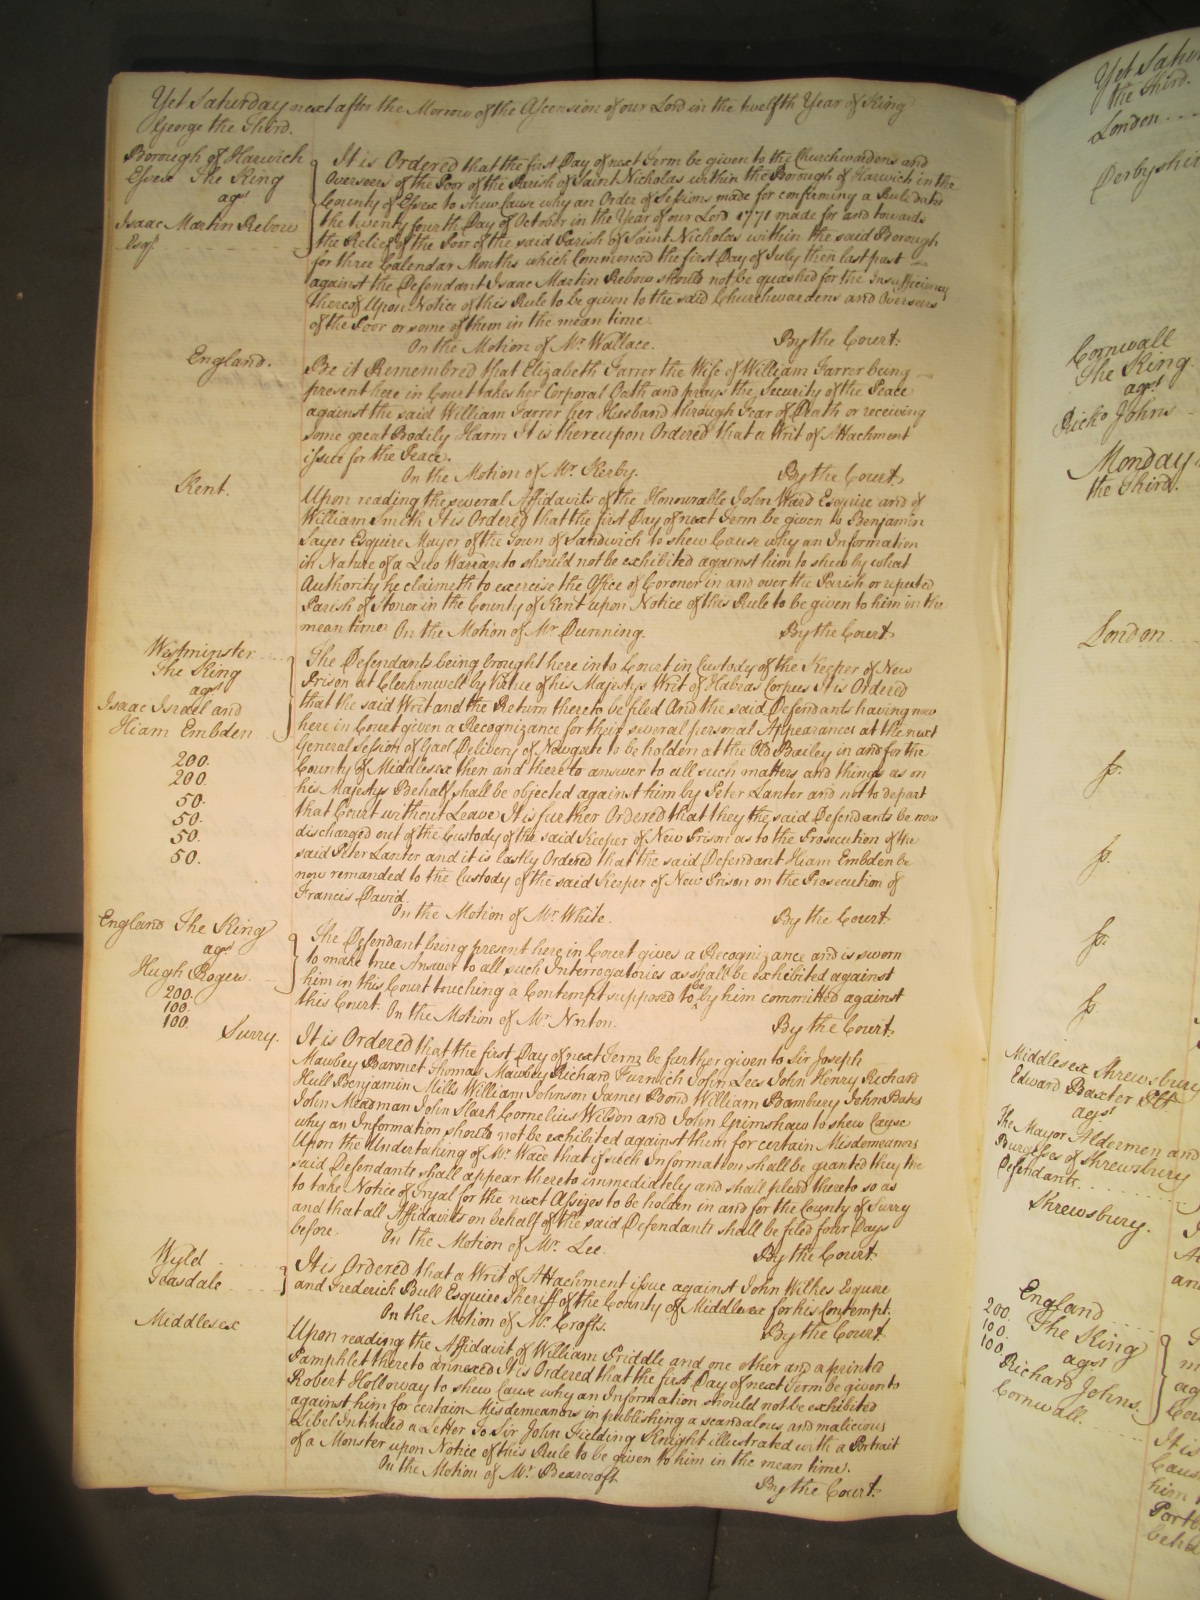 Yet Saturday next after the Morrow of the Ascension of our Lord in the twelfth Year of King
George the Third.
Borough of Harwich
Essex The King
agt
Isaac Martin Rebow
Esqr
It is Ordered that the first Day of next Term be given to the Churchwardens and
Overseers of the Poor of the Parish of Saint Nicholas within the Borough of Harwich in the
County of Essex to shew Cause why an Order of Sessions made for confirming a Rule dated
the twenty fourth Day of October in the Year of our Lord 1771 made for and towards
the Relief of the Poor of the said Parish of Saint Nicholas within the said Borough
for three Calendar Months which Commenced the first Day of July then last past
against the Defendant Isaac Martin Rebow should not be quashed for the Insufficiency
thereof Upon Notice of this Rule to be given to the said Churchwardens and Overseers
of the Poor or some of them in the mean time
On the Motion of Mr. Wallace. By the Court.
England.
Be it Remembred that Elizabeth Farrer the Wife of William Farrer being
present here in Court takes her Corporal Oath and prays the Security of the Peace
against the said William Farrer her Husband through Fear of Death or receiving
some great Bodily Harm It is thereupon Ordered that a Writ of Attachment
issue for the Peace.
On the Motion of Mr. Kerby. By the Court.
Kent.
Upon reading the several Affidavits of the Honourable John Ward Esquire and of
William Smith It is Ordered that the first Day of next Term be given to Benjamin
Sayer Esquire Mayor of the Town of Sandwich to shew Cause why an Information
in Nature of a Quo Warranto should not be exhibited against him to shew by what
Authority he claimeth to exercise the Office of Coroner in and over the Parish or reputed
Parish of Stonor in the County of Kent upon Notice of this Rule to be given to him in the
mean time On the Motion of Mr. Dunning. By the Court
Westminster
The King
agt
Isaac Israel and
Hiam Embden
200.
200.
50.
50.
50.
50.
The Defendants being brought here into Court in Custody of the Keeper of New
Prison at Clerkenwell by Virtue of his Majestys Writ of Habeas Corpus It is Ordered
that the said Writ and the Return thereto be filed And the said Defendants having now
here in Court given a Recognizance for their several personal Appearances at the next
General Session of Gaol Delivery of Newgate to be holden at the Old Bailey in and for the
County of Middlesex then and there to answer to all such matters and things as on
his Majestys Behalf shall be objected against him by Peter Lanter and not to depart
that Court without Leave It is further Ordered that they the said Defendants be now
discharged out of the Custody of the said Keeper of New Prison as to the Prosecution of the
said Peter Lanter and it is lastly Ordered that the said Defendant Hiam Embden be
now remanded to the Custody of the said Keeper of New Prison on the Prosecution of
Francis David.
On the Motion of Mr. White. By the Court
England The King
agt
Hugh Rogers
200.
100.
100.
The Defendant being present here in Court gives a Recognizance and is sworn
to make true Answer to all such Interrogatories as shall be exhibited against
him in this Court touching a Contempt supposed to be by him committed against
this Court. On the Motion of Mr. Norton. By the Court.
Surry.
It is Ordered that the first Day of next Term be further given to Sir Joseph
Mawbey Baronet Thomas Mawbey Richard Furnich John Lees John Henry Richard
Hull Benjamin Mills William Johnson James Bond William Bambury John Bates
John Meadman John Slark Cornelius Wilson and John Grimshaw to shew Cause
why an Information should not be exhibited against them for certain Misdemeanors
Upon the Undertaking of Mr. Wace that if such Information shall be granted they the
said Defendants shall appear thereto immediately and shall plead thereto so as
to take Notice of Tryal for the next Assizes to be holden in and for the County of Surry
and that all Affidavits on behalf of the said Defendants shall be filed four Days
before. On the Motion of Mr. Lee. By the Court
Wyld
Teasdale
It is Ordered that a Writ of Attachment issue against John Wilkes Esquire
and Frederick Bull Esquire Sheriff of the County of Middlesex for his Contempt.
On the Motion of Mr. Crofts. By the Court
Middlesex
Upon reading the Affidavit of William Priddle and one other and a printed
Pamphlet thereto annexed It is Ordered that the first Day of next Term be given to
Robert Holloway to shew Cause why an Information should not be exhibited
against him for certain Misdemeanors in publishing a scandalous and malicious
Libel Intituled a Letter To Sir John Fielding Knight illustrated with a Portrait
of a Monster upon Notice of this Rule to be given to him in the mean time.
On the Motion of Mr. Bearcroft By the Court.
Yet Satur
the Third.
London
Derbyshire
Cornwall
The King
agst
Johns
Monday
the Third.
London
Middlesex Shrewsbury
Edward Baxter
agst
The Mayor Aldermen and
Burgesses of Shrewsbury
Defendants
Shrewsbury.
England
200.
100.
100.
The King
agst
Richard Johns.
Cornwall.
It is
him